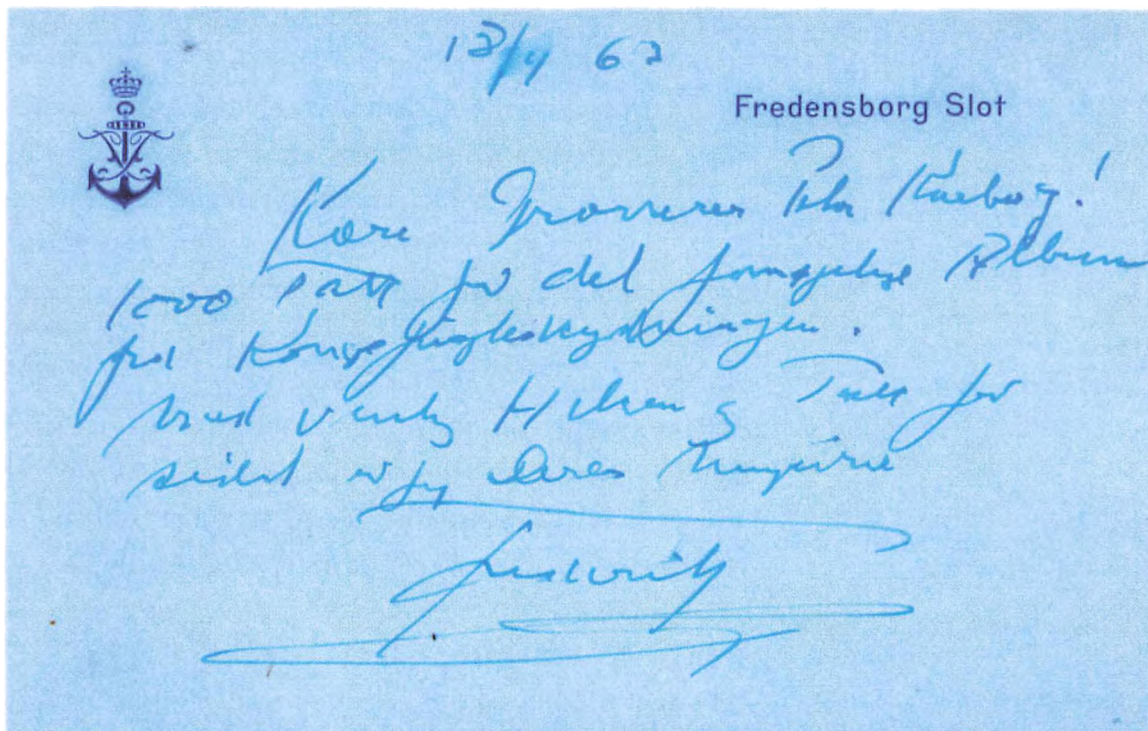 13/4 62
Fredensborg Slot
Kære Grosserer Kaeborg!
1000 Tak for det fornøjelige Album
fra Kongefugleskydningen.
Med venlig Hilsen og Tak for
sidst er jeg Deres hengivne
Frederik